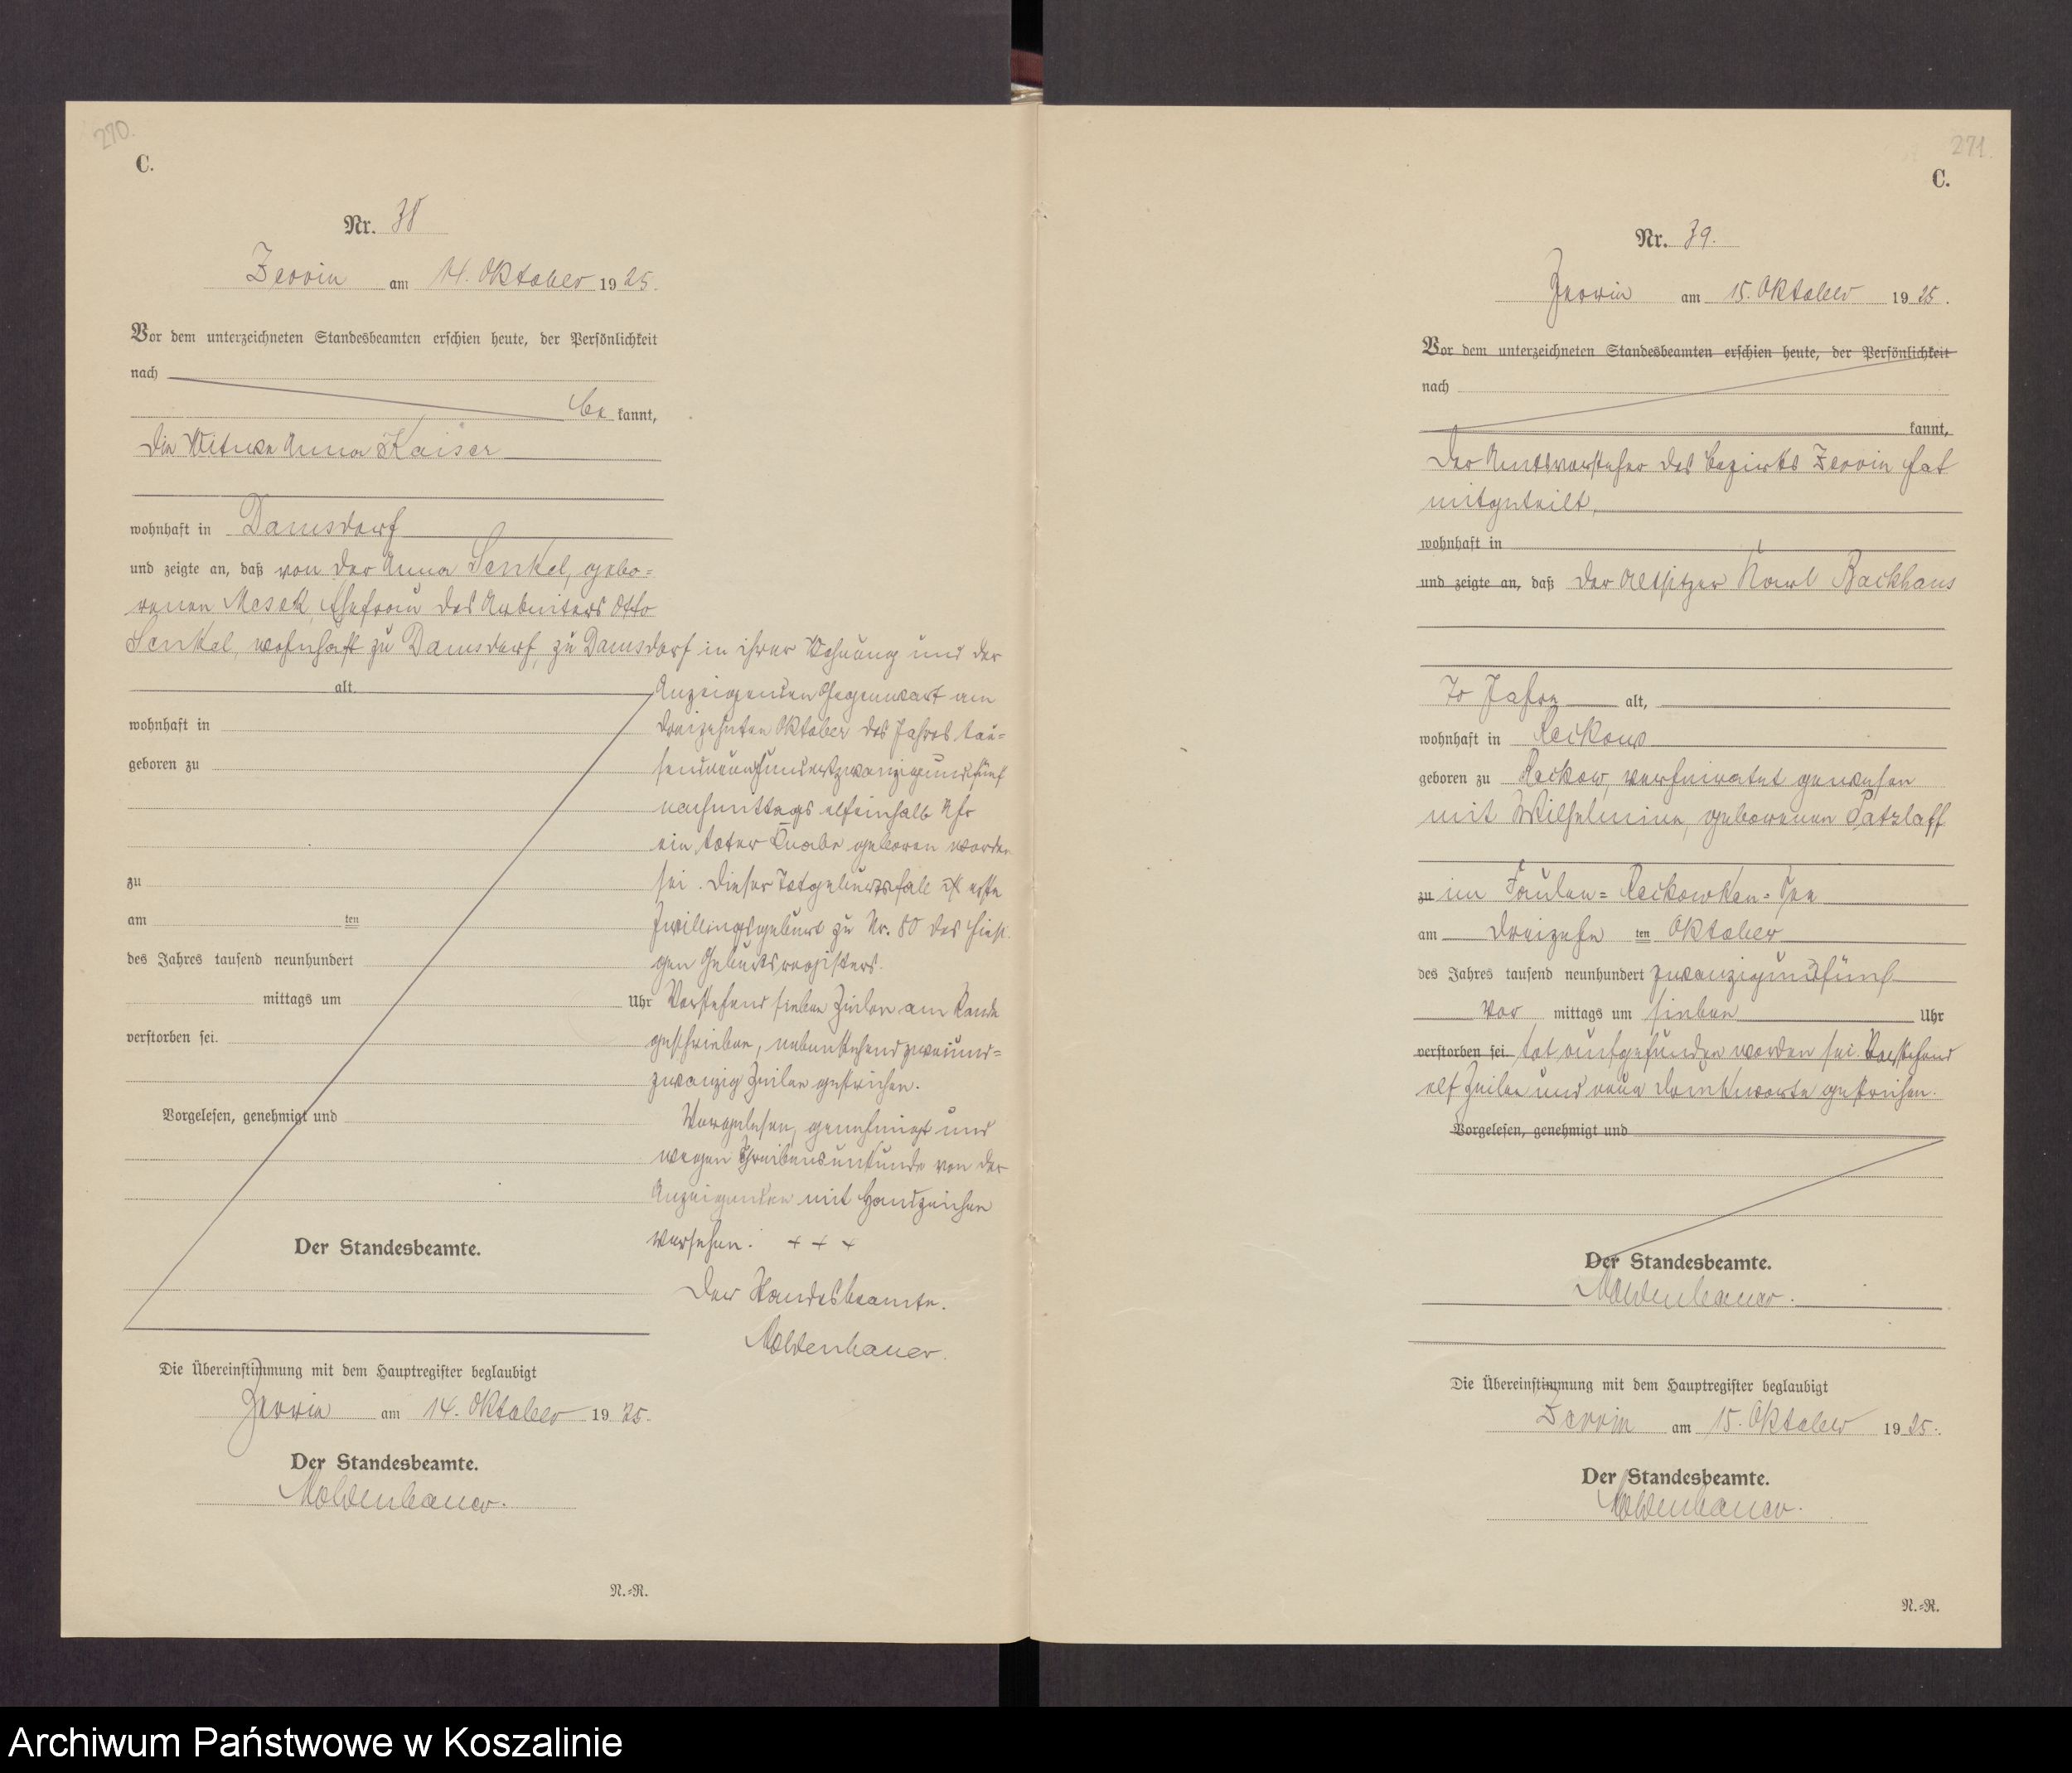 270.
C.
Nr. 38
Zerrin am 14. Oktober 1925.
Vor dem unterzeichneten Standesbeamten erschien heute, der Persönlichkeit
nach
be kannt,
die Witwe Anna Kaiser
wohnhaft in Damsdorf
und zeigte an, daß von der Anna Senkel, gebo=
renen Mesek, Ehefrau des Arbeiters Otto
Senkel, wohnhaft zu Damsdorf, zu Damsdorf in ihrer Wohnung und der
alt
Anzeigenden Gegenwart am
wohnhaft in
dreizehnten Oktober des Jahres tau=
geboren zu
sendneunhundertzwanzigundfünf
nachmittags elfeinhalb Uhr
ein toter Knabe geboren worden
zu
sei. Dieser Totgeburtsfall ist erste
am ten
Zwillingsgeburt zu Nr. 80 des hiesi-
des Jahres tausend neunhundert
gen Geburtsregisters.
mittags um Uhr
Vorstehend sieben Zeilen am Rande
verstorben sei.
geschrieben, nebenstehend zweiund=
zwanzig Zeilen gestrichen.
Vorgelesen, genehmigt und
Vorgelesen, genehmigt und
wegen Schreibensunkunde von der
Anzeigenden mit Handzeichen
versehen. + + +
Der Standesbeamte.
Der Standesbeamte.
Moldenhauer.
Die Übereinstimmung mit dem Hauptregister beglaubigt
Zerrin am 14. Oktober 1925.
Der Standesbeamte.
Moldenhauer.
N.=R.
271.
C.
Nr. 39.
Zerrin am 15. Oktober 1925.
Vor dem unterzeichneten Standesbeamten erschien heute, der Persönlichkeit
nach
kannt,
Der Amtsvorsteher des Bezirks Zerrin hat
mitgeteilt,
wohnhaft in
und zeigte an, daß der Altsitzer Karl Backhaus
70 Jahre alt,
wohnhaft in Reckow
geboren zu Reckow, verheiratet gewesen
mit Wilhelmine, geborenen Patzlaff
zu im Faulen=Reckowken=See
am dreizehn ten Oktober
des Jahres tausend neunhundert zwanzigundfünf
Vor mittags um sieben Uhr
verstorben sei tot aufgefunden worden sei. Vorstehend
elf Zeilen und neun Druckworte gestrichen.
Vorgelesen, genehmigt und
Der Standesbeamte.
Moldenhauer.
Die Übereinstimmung mit dem Hauptregister beglaubigt
Zerrin am 15. Oktober 1925.
Der Standesbeamte.
Moldenhauer.
N.=R.
Archiwum Państwowe w Koszalinie